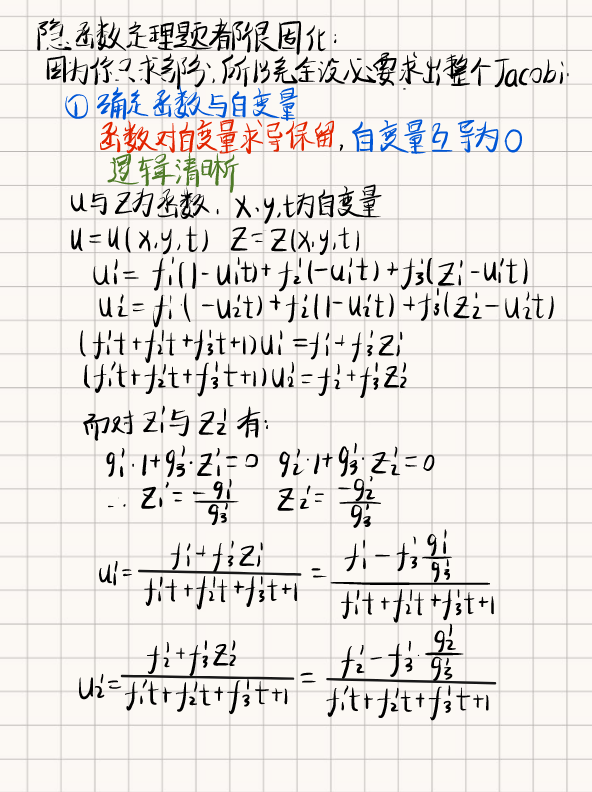 隐函数定理题都很固化:
因为你只求部分,所以完全没必要求出整个Jacobi
① 确定函数与自变量
函数对自变量求导保留,自变量互导为0
逻辑清晰
u与z为函数, x,y,t为自变量
u=u(x,y,t) z=z(x,y,t)
u₁'= f₁'(1-u₁'t)+f₂'(-u₁'t)+f₃'(z₁'-u₁'t)
u₂'= f₁'(-u₂'t)+f₂'(1-u₂'t)+f₃'(z₂'-u₂'t)
(f₁'t+f₂'t+f₃'t+1)u₁'=f₁'+f₃'z₁'
(f₁'t+f₂'t+f₃'t+1)u₂'=f₂'+f₃'z₂'
而对z₁'与z₂'有:
g₁'·1+g₃'·z₁'=0 g₂'·1+g₃'·z₂'=0
∴ z₁'=\frac{-g₁'}{g₃'} z₂'=\frac{-g₂'}{g₃'}
u₁'=\frac{f₁'+f₃'z₁'}{f₁'t+f₂'t+f₃'t+1}=\frac{f₁'-f₃'\frac{g₁'}{g₃'}}{f₁'t+f₂'t+f₃'t+1}
u₂'=\frac{f₂'+f₃'z₂'}{f₁'t+f₂'t+f₃'t+1}=\frac{f₂'-f₃'·\frac{g₂'}{g₃'}}{f₁'t+f₂'t+f₃'t+1}